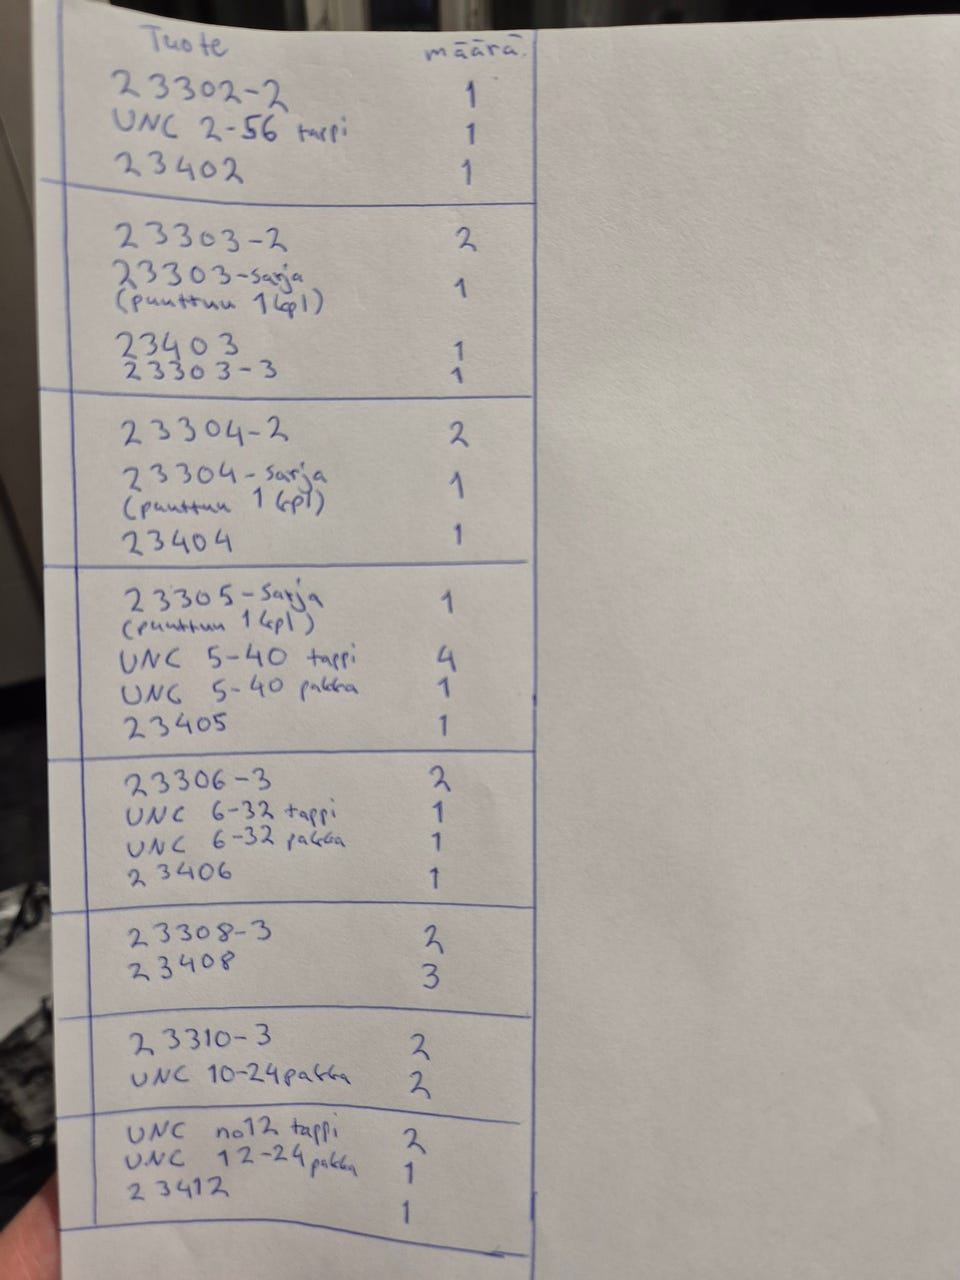 Tuote määrä
23302-2 1
UNC 2-56 tappi 1
23402 1
23303-2 2
23303-sarja 1
(puuttuu 1kpl)
23403 1
23303-3 1
23304-2 2
23304-sarja 1
(puuttuu 1kpl)
23404 1
23305-sarja 1
(puuttuu 1kpl)
UNC 5-40 tappi 4
UNC 5-40 pakka 1
23405 1
23306-3 2
UNC 6-32 tappi 1
UNC 6-32 pakka 1
23406 1
23308-3 2
23408 3
23310-3 2
UNC 10-24 pakka 2
UNC no12 tappi 2
UNC 12-24 pakka 1
23412 1